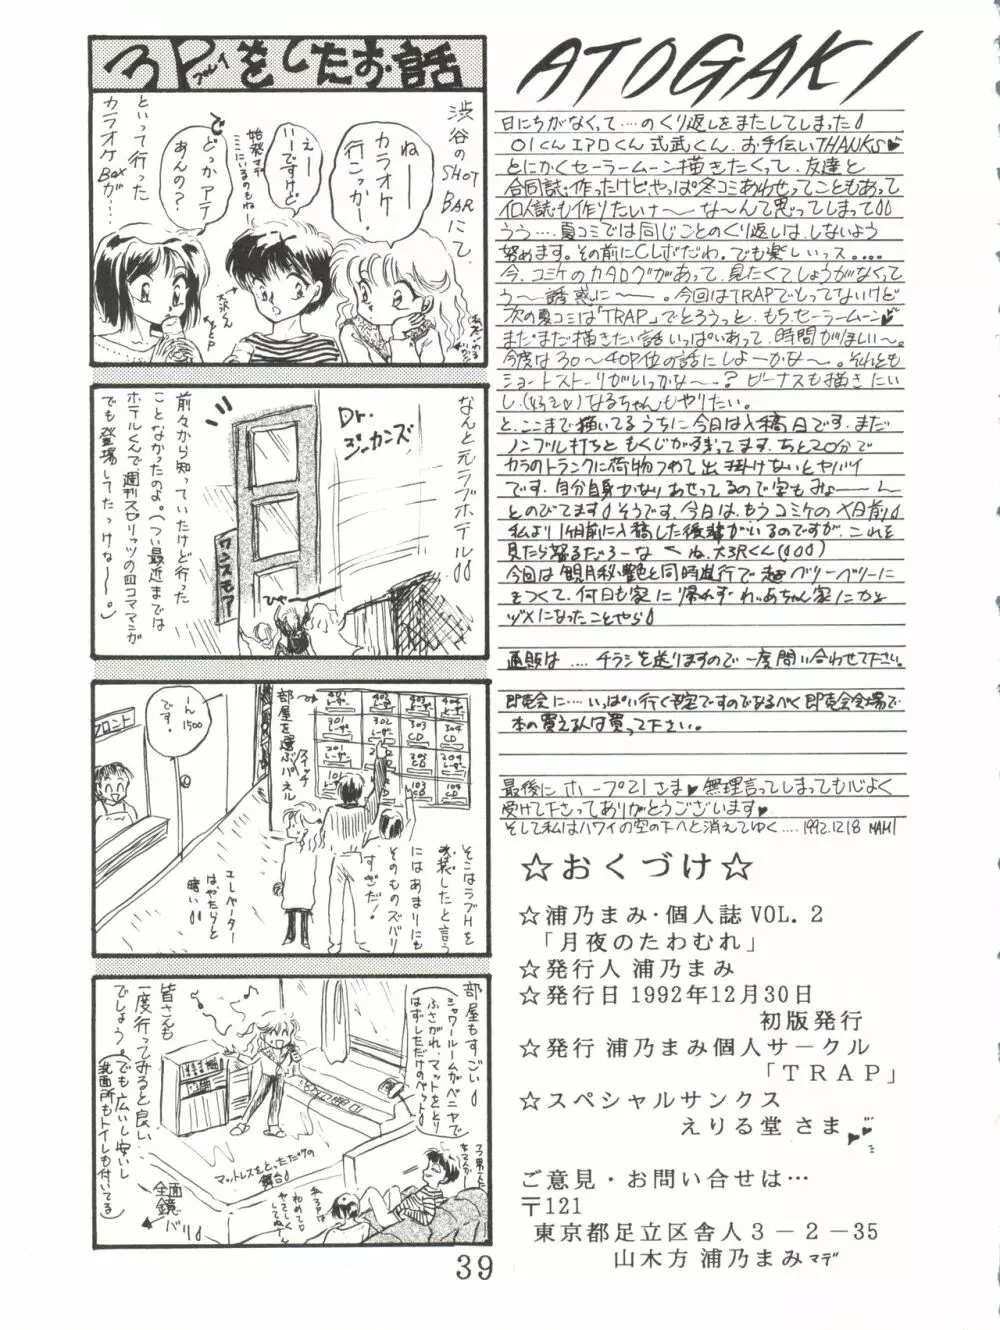 3Pプレイをしたお話
渋谷のSHOT
BARにて
ねー
カラオケ
行こっかー
えー
いーですけど
始発マデ
ここにいるのもねー
でどっかアテ
あんの？
といって行った
カラオケ
BOXが…
大沢くん
なんと元ラブホテル!!
Dr.
ジーカンズ
ワンスモア
ひゃー
前々から知っていたけど行った
ことなかったのよ。(つい最近までは
ホテルくんで週刊スピリッツの四コママンガ
でも登場してたっけな～。)
部屋を選ぶパネル
スイッチ
401
402
403
404
301
302
303
304
CD
201
202
203
204
101
102
103
104
フロント
一人
1500
です。
そこはラブHを
改装したと言う
にはあまりにも
そのものズバリ
すぎだ！
エレベーター
はやたらと
暗い!!
部屋もすごい!
シャワールームがベニヤで
ふさがれ、マットをとり
はずしただけのベット!
皆さんも
一度行ってみると良い…
でしょう。(でも広いし安いし
洗面所もトイレも付いてる)
マットレスをとっただけの
舞台!
私3Pは
初めて♡
やさしく
してねっ
全面
鏡
バリ!
39
ATOGAKI
日にちがなくって‥‥のくり返しをまたしてしまった!
OIくん エアロくん 式武くん、お手伝いTHANKS♥
とにかくセーラームーン描きたくって、友達と
合同誌作ったけどやっぱ冬コミあわせってこともあって
個人誌も作りたいナ～な～んて思ってしまって!!
うう‥‥夏コミでは同じことのくり返しは、しないよう
努めます。その前にCレボだわ。でも楽しいっス。。。。
今、コミケのカタログがあって、見たくてしょうがなくって
う～誘惑に～～。今回はTRAPでとってないけど
次の夏コミは「TRAP」でとろうっと、もちセーラームーン♥
まだまだ描きたい話いっぱいあって、時間がほしい～。
今度は30～40P位の話にしよーかな～。それとも
ショートストーリがいっかな～‥？ビーナスも描きたい
し、(好き♡)なるちゃんもやりたい。
と、ここまで描いてるうちに今日は入稿日です。まだ
ノンブル打ちともくじが残ってます。あと20分で
カラのトランクに荷物つめて出掛けないとヤバイ
です。自分自身かなりあせってるので字もみょ――ん
とのびてます!そうです、今日は、もうコミケのX日前!
私より1ヶ月前に入稿した後輩がいるのですが、これを
見たら怒るだろーな～ね、大沢くん(!!!)
今回は観月秘艶と同時進行で超ベリーベリーに
きつくて、何日も家に帰れず、わぁあちゃん家にカン
ヅメになったことやら!
通販は‥‥チラシを送りますので一度問い合わせて下さい。
即売会に‥‥いっぱい行く予定ですのでなるべく即売会会場で
本の買える人は買って下さい。
最後にホープ21さま♥無理言ってしまっても心よく
受けて下さってありがとうございます♥
そして私はハワイの空の下へと消えてゆく‥‥1992.12.18 MAMI
☆おくづけ☆
☆浦乃まみ・個人誌VOL.2
「月夜のたわむれ」
☆発行人 浦乃まみ
☆発行日 1992年12月30日
初版発行
☆発行 浦乃まみ個人サークル
「TRAP」
☆スペシャルサンクス
えりる堂 さま
ご意見・お問い合せは…
〒121
東京都足立区舎人3－2－35
山木方 浦乃まみマデ